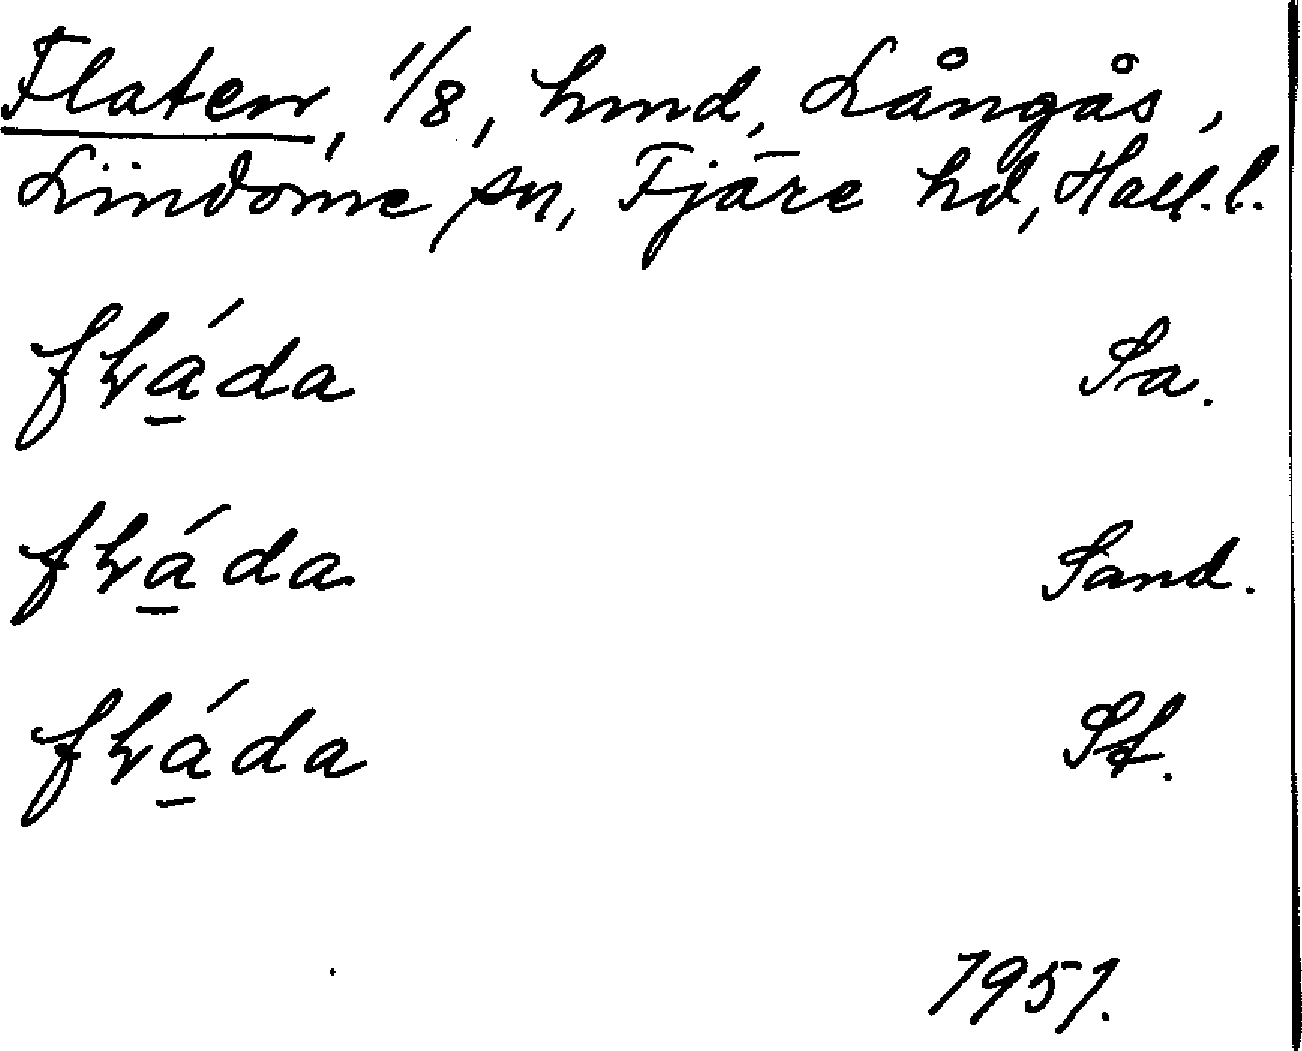 Flaten, 1/8, hmd, Långås,
Lindome sn, Fjäre hd, Hall.l.
flá̲da Sa.
flá̲da Sand.
flá̲da St.
1951.